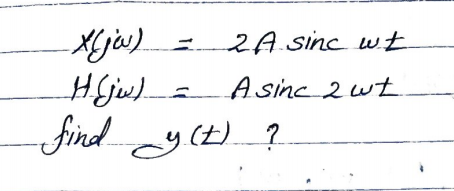 X(jω) = 2A sinc wt
H(jω) = A sinc 2wt
find y(t) ?